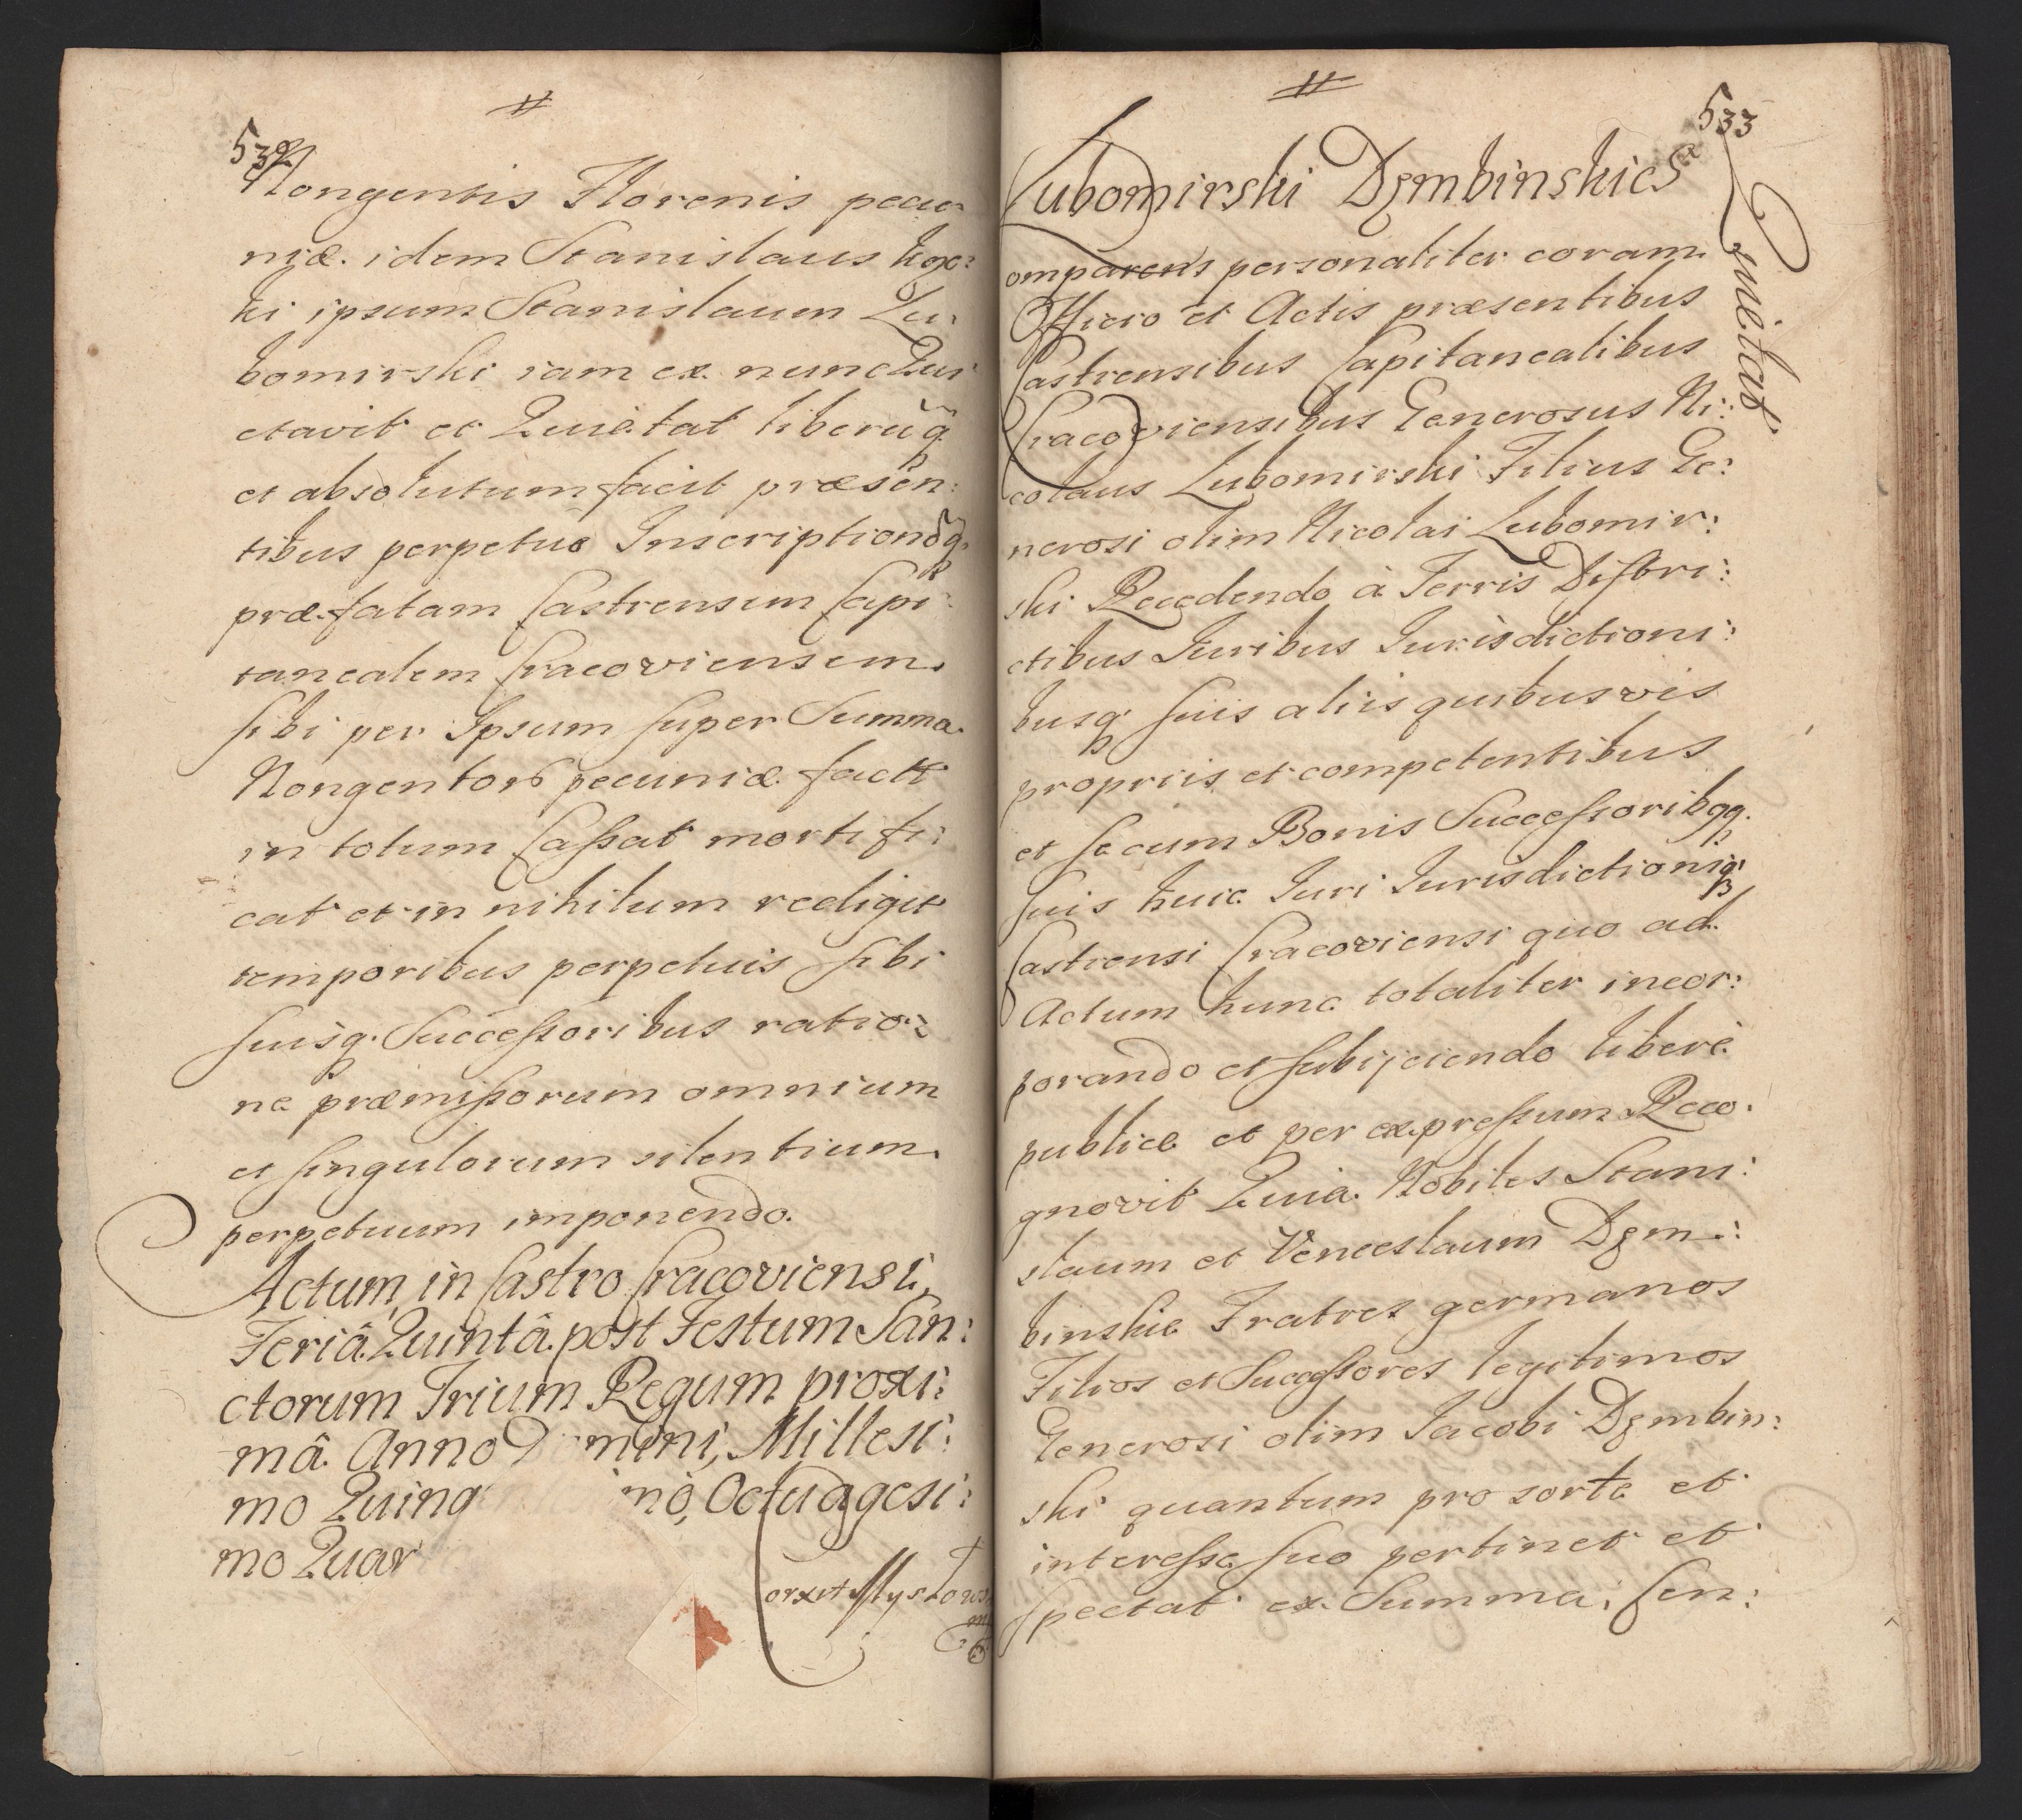 532
Nongentis Florenis pecu-
niæ. idem Stanislaus
ki ipsum Stanislaum Lu:
bomirski iam ex nunc Qui
etavit et Quietat liberũq
et absolutum facit præsen:
tibus perpetuo Inscriptionẽq.
præfatam Castrensem Capi:
tanealem Cracoviensem.
sibi per Ipsum super Summa
Nongentorũ pecuniæ factt
in totum Cassat mortifi:
cat et in nihilum redigit
temporibus perpetuis sibi
suisq. Successoribus ratio:
ne præmissorum omnium
et singulorum silentium
perpetuum imponendo.
Actum in Castro Cracoviensi,
Feriâ Quintâ post Festum San:
ctorum Trium Regum proxi:
mâ Anno D mini, Millesi:
mo Quing mò, Octuagesi:
mo Quar
533
Lubomirski Dembinskies
Quietat
omparens personaliter coram
Officio et Actis præsentibus
Castrensibus Capitanealibus
Cracoviensibus Generosus Ni:
colaus Lubomirski Filius Ge:
nerosi olim Nicolai Lubomir:
ski Recedendo à Terris Distri:
ctibus Juribus Jurisdictioni:
busq. suis aliis quibusvis
propriis et competentibus
et se cum Bonis Successoribqq.
suis huic Juri Jurisdictioniq.
Castrensi Cracoviensi quo ad
Actum hunc totaliter incor:
porando et subijciendo liberè
publicè et per expressum Reco.
gnovit Quia Nobiles Stani:
slaum et Venceslaum Dem:
binskie Fratres germanos
Filios et Successores legitimos
Generosi olim Jacobi Dembin:
ski quantum pro sorte et
interesse suo pertinet et
spectat ex Summa, sen: